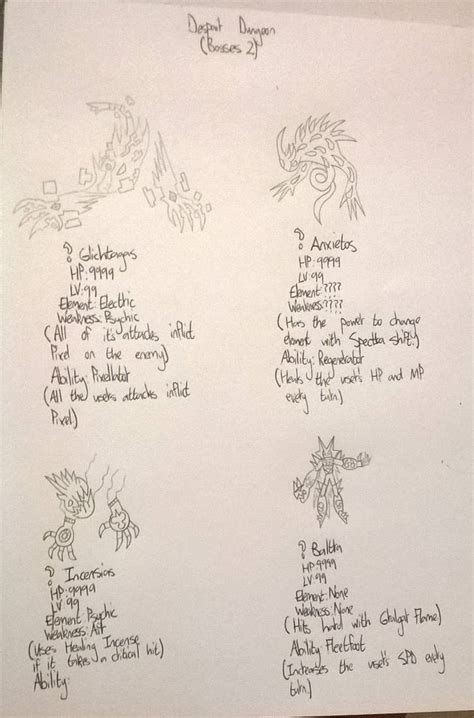 Despair Dungeon
(Bosses 2)
? Glichtorgas
HP:9999
LV:99
Element: Electric
Weakness: Psychic
(All of it's attacks inflict
Pixel on the enemy)
Ability: Pixellator
(All the user's attacks inflict
Pixel)
? Anxietos
HP:9999
LV:99
Element:????
Weakness:????
(Has the power to change
element with Spectra shift)
Ability: Regenerator
(Heals the user's HP and MP
every turn)
? Incensiors
HP:9999
LV:99
Element: Psychic
Weakness: Air
(Uses Healing Incense
if it takes a critical hit)
Ability:
? Baltra
HP:9999
LV:99
Element: None
Weakness: None
(Hits hard with Flame)
Ability Fleetfoot
(Increases the user's SPD every
turn)